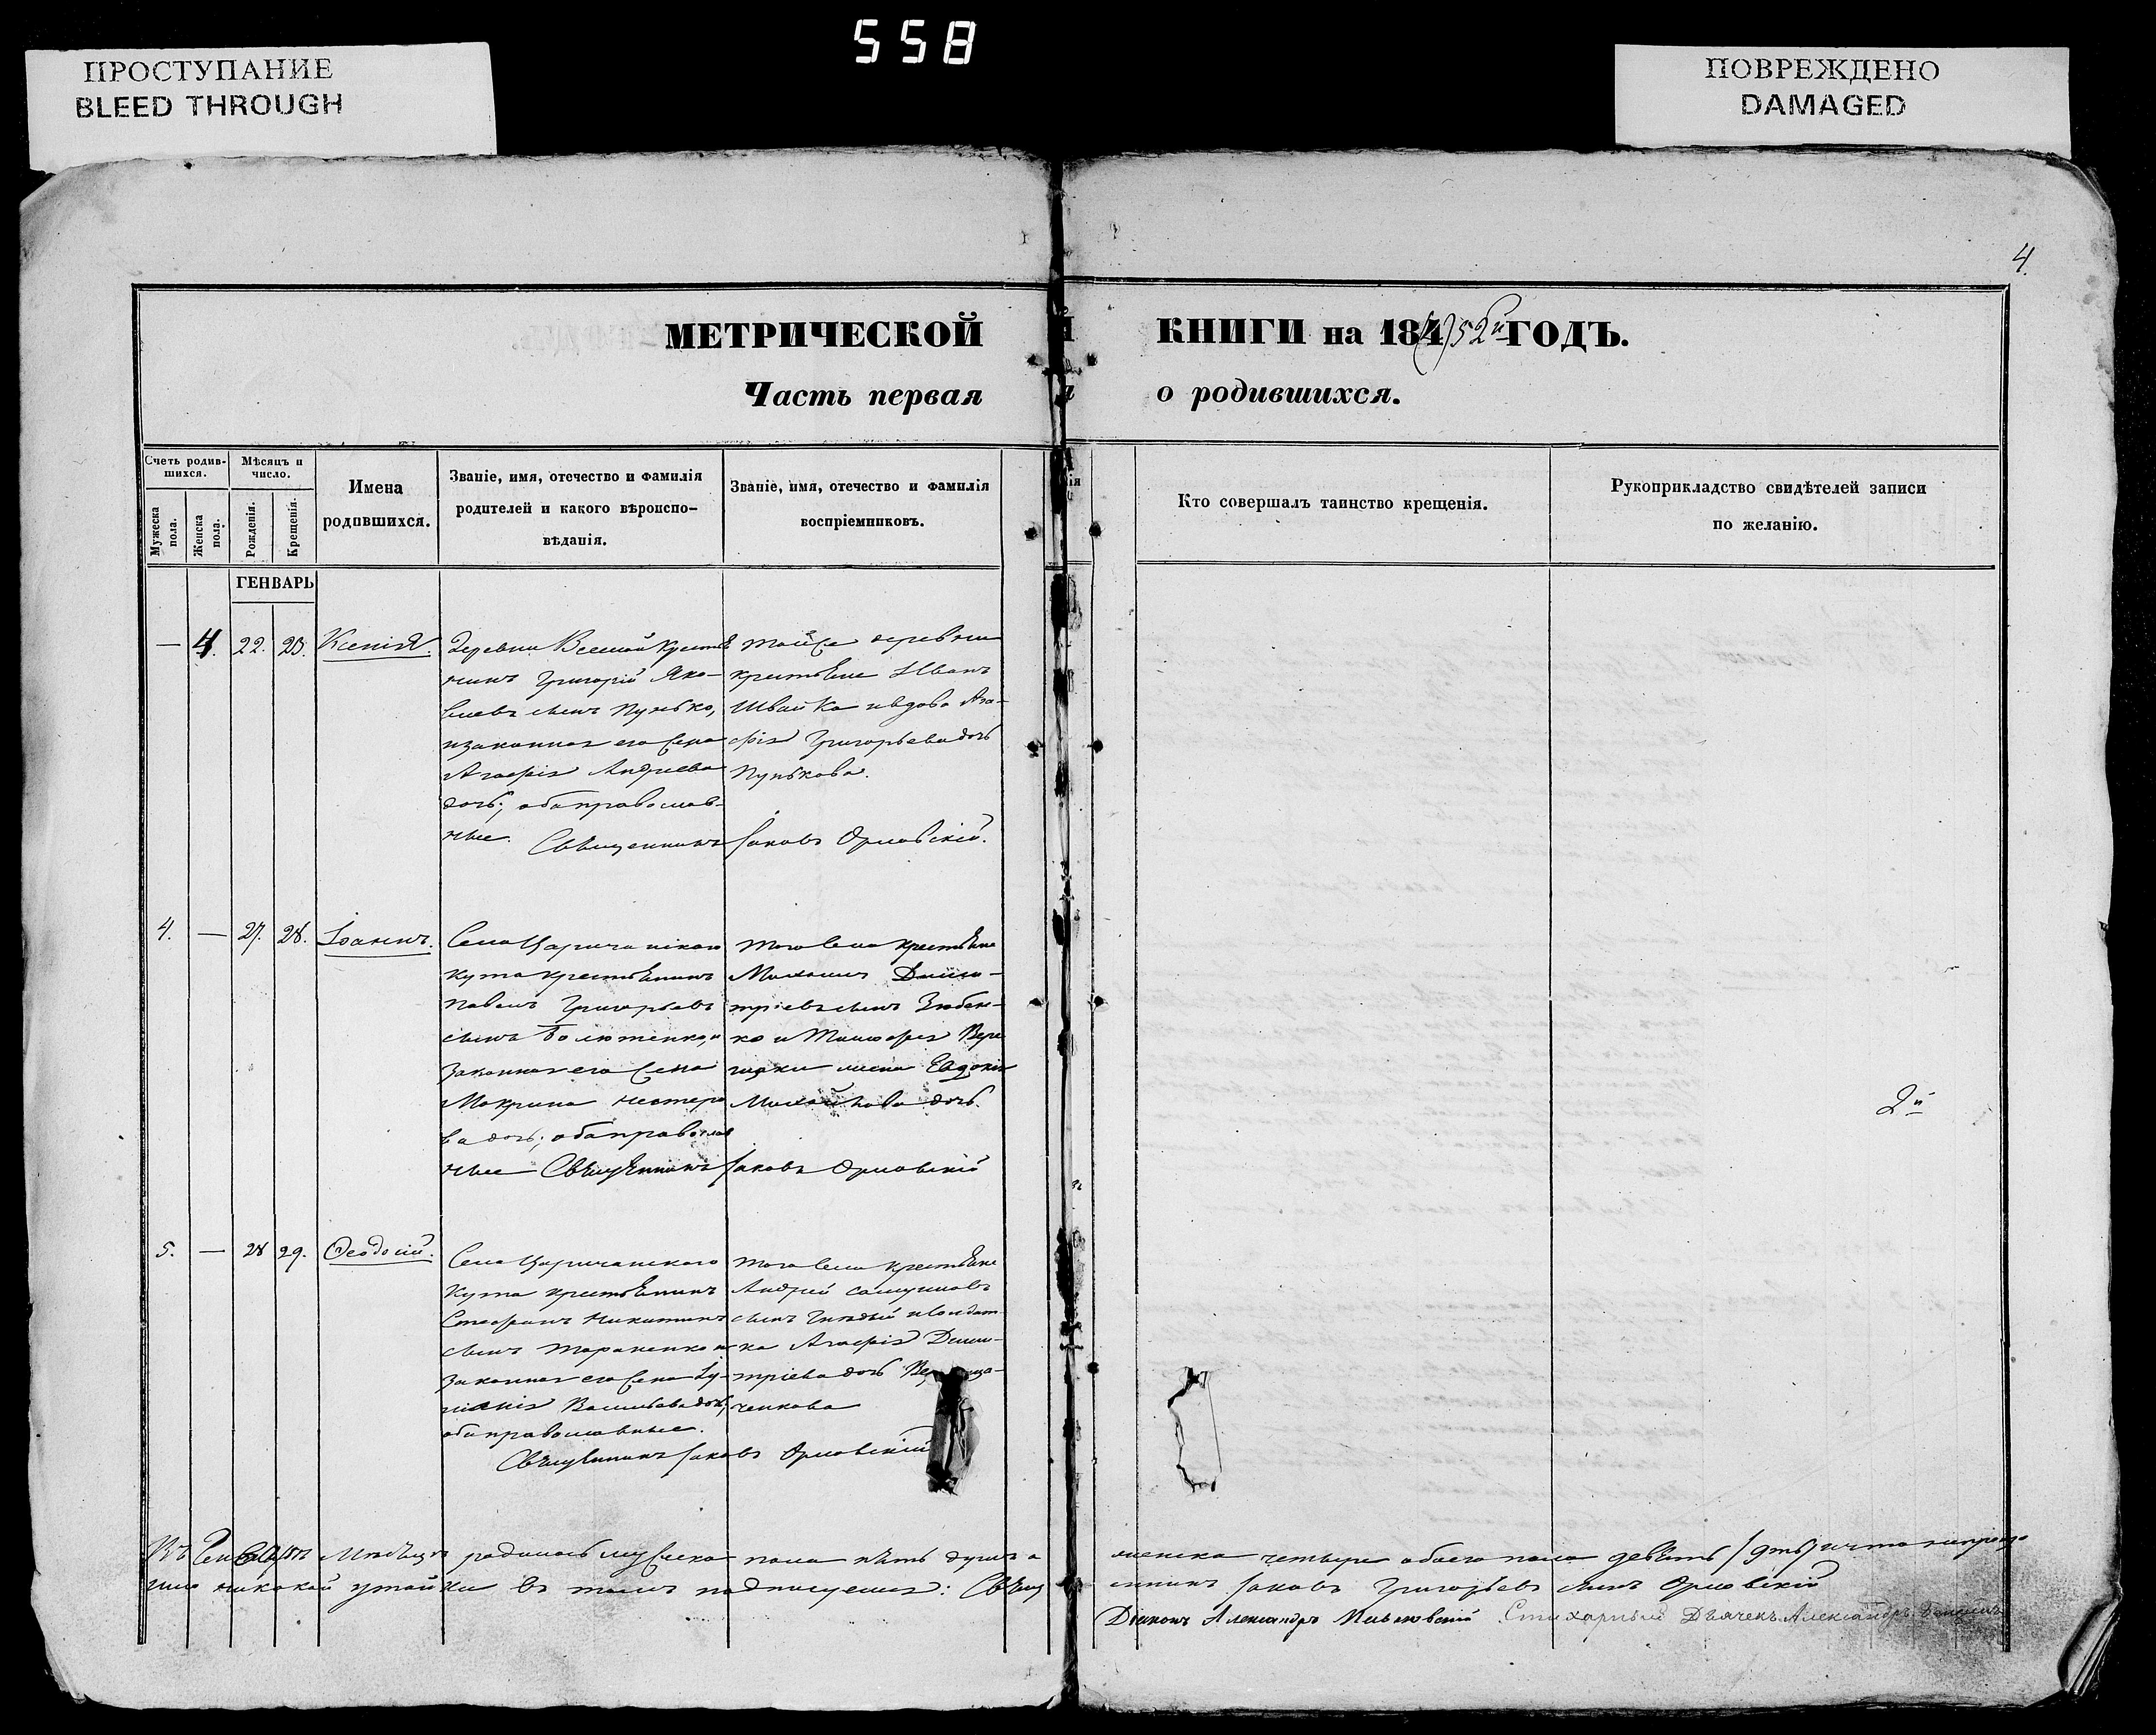 558
ПРОСТУПАНИЕ
BLEED THROUGH
ПОВРЕЖДЕНО
DAMAGED
4.
МЕТРИЧЕСКОЙ КНИГИ на 184(7)52й ГОДЪ.
Часть первая о родившихся.
Счетъ родив-
шихся.
Мужеска
пола.
Женска
пола.
Мѣсяцъ и
число.
Рожденія.
Крещенія.
Имена
родившихся.
Званіе, имя, отечество и фамилія
родителей и какого вѣроиспо-
вѣданія.
Званіе, имя, отечество и фамилія
воспріемниковъ.
Кто совершалъ таинство крещенія.
Рукоприкладство свидѣтелей записи
по желанію.
ГЕНВАРЬ
— 4. 22. 23. Ксенія.
Деревни крестья
нинъ Григорій Яко-
влевъ сынъ Пунько,
изаконная его жена
Агафія Андреева
дочь; оба православ-
ные.
тойже деревни
крестьяне Иванъ
Швайка ивдова Ага-
фія Григорьева дочь
Пунькова.
Священникъ Іаковъ Орловскій.
4. — 27. 28. Іоаннъ.
Села Царичанскаго
кута крестьянинъ
Павелъ Григорьевъ
сынъ и
законная его жена
Макрина Нестеро
ва дочь; оба православ
ные
того села крестьяне
Михаилъ Дими-
тріевъ сынъ
ко и Тимофея Вере
жена Евдокія
Михайлова дочь.
Священникъ Іаковъ Орловскій
2й
5. — 28 29. Ѳеодосій.
Села Царичанскаго
кута крестьянинъ
Стефанъ Никитинъ
сынъ Тараненко и
законная его жена Іу-
ліанія Васильева дочь,
оба православные.
того села крестьяне
Андрей Самуиловъ
сынъ Гнедый исолдат-
ка Агафія Дими-
тріева дочь
ченкова
Священникъ Іаковъ Орловскій
Въ Генварѣ Мѣсяцѣ родилось мужеска пола пять душъ а женска четыре обоего пола девять /9ть/ ичто непроизо
шло никакой утайки въ томъ подписуемся: Священникъ Іаковъ Григорьевъ сынъ Орловскій
Діаконъ Александръ Стихарный Дьячекъ Александръ